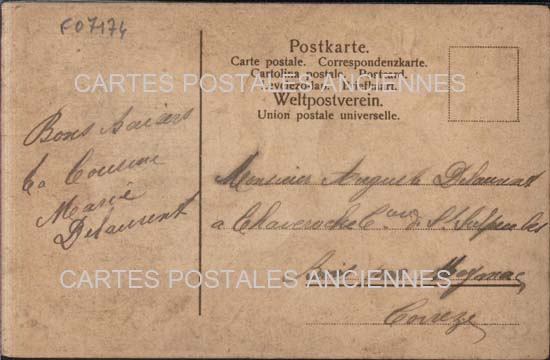 F07174
Postkarte.
Carte postale. Correspondenzkarte.
Cartolina postale. Postcard.
Levelezö-lap. Briefkaart.
Weltpostverein.
Union postale universelle.
CARTES POSTALES ANCIENNES
Bons Baisers
Ta Cousine
Marie
Delaurent
Monsieur Auguste Delaurent
a Chaveroche Cne de St Sulpice les
Bois par Meymac
Corrèze
CARTES POSTALES ANCIENNES